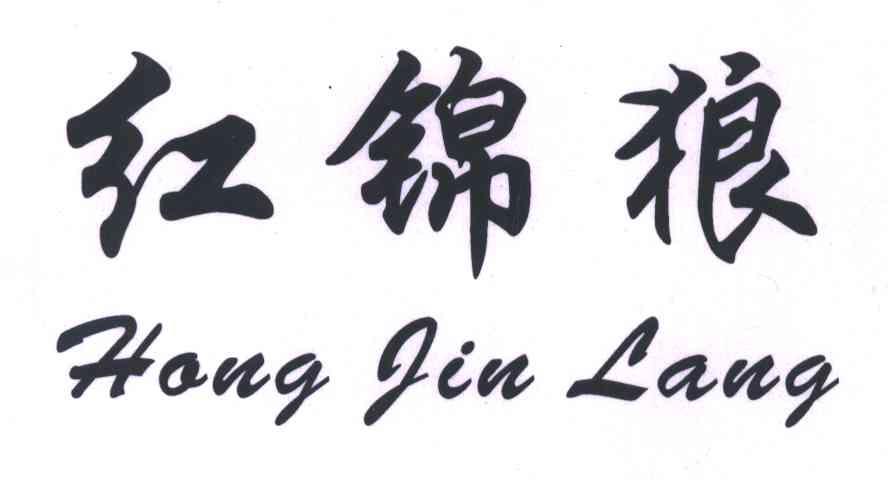 红锦狼
Hong Jin Lang